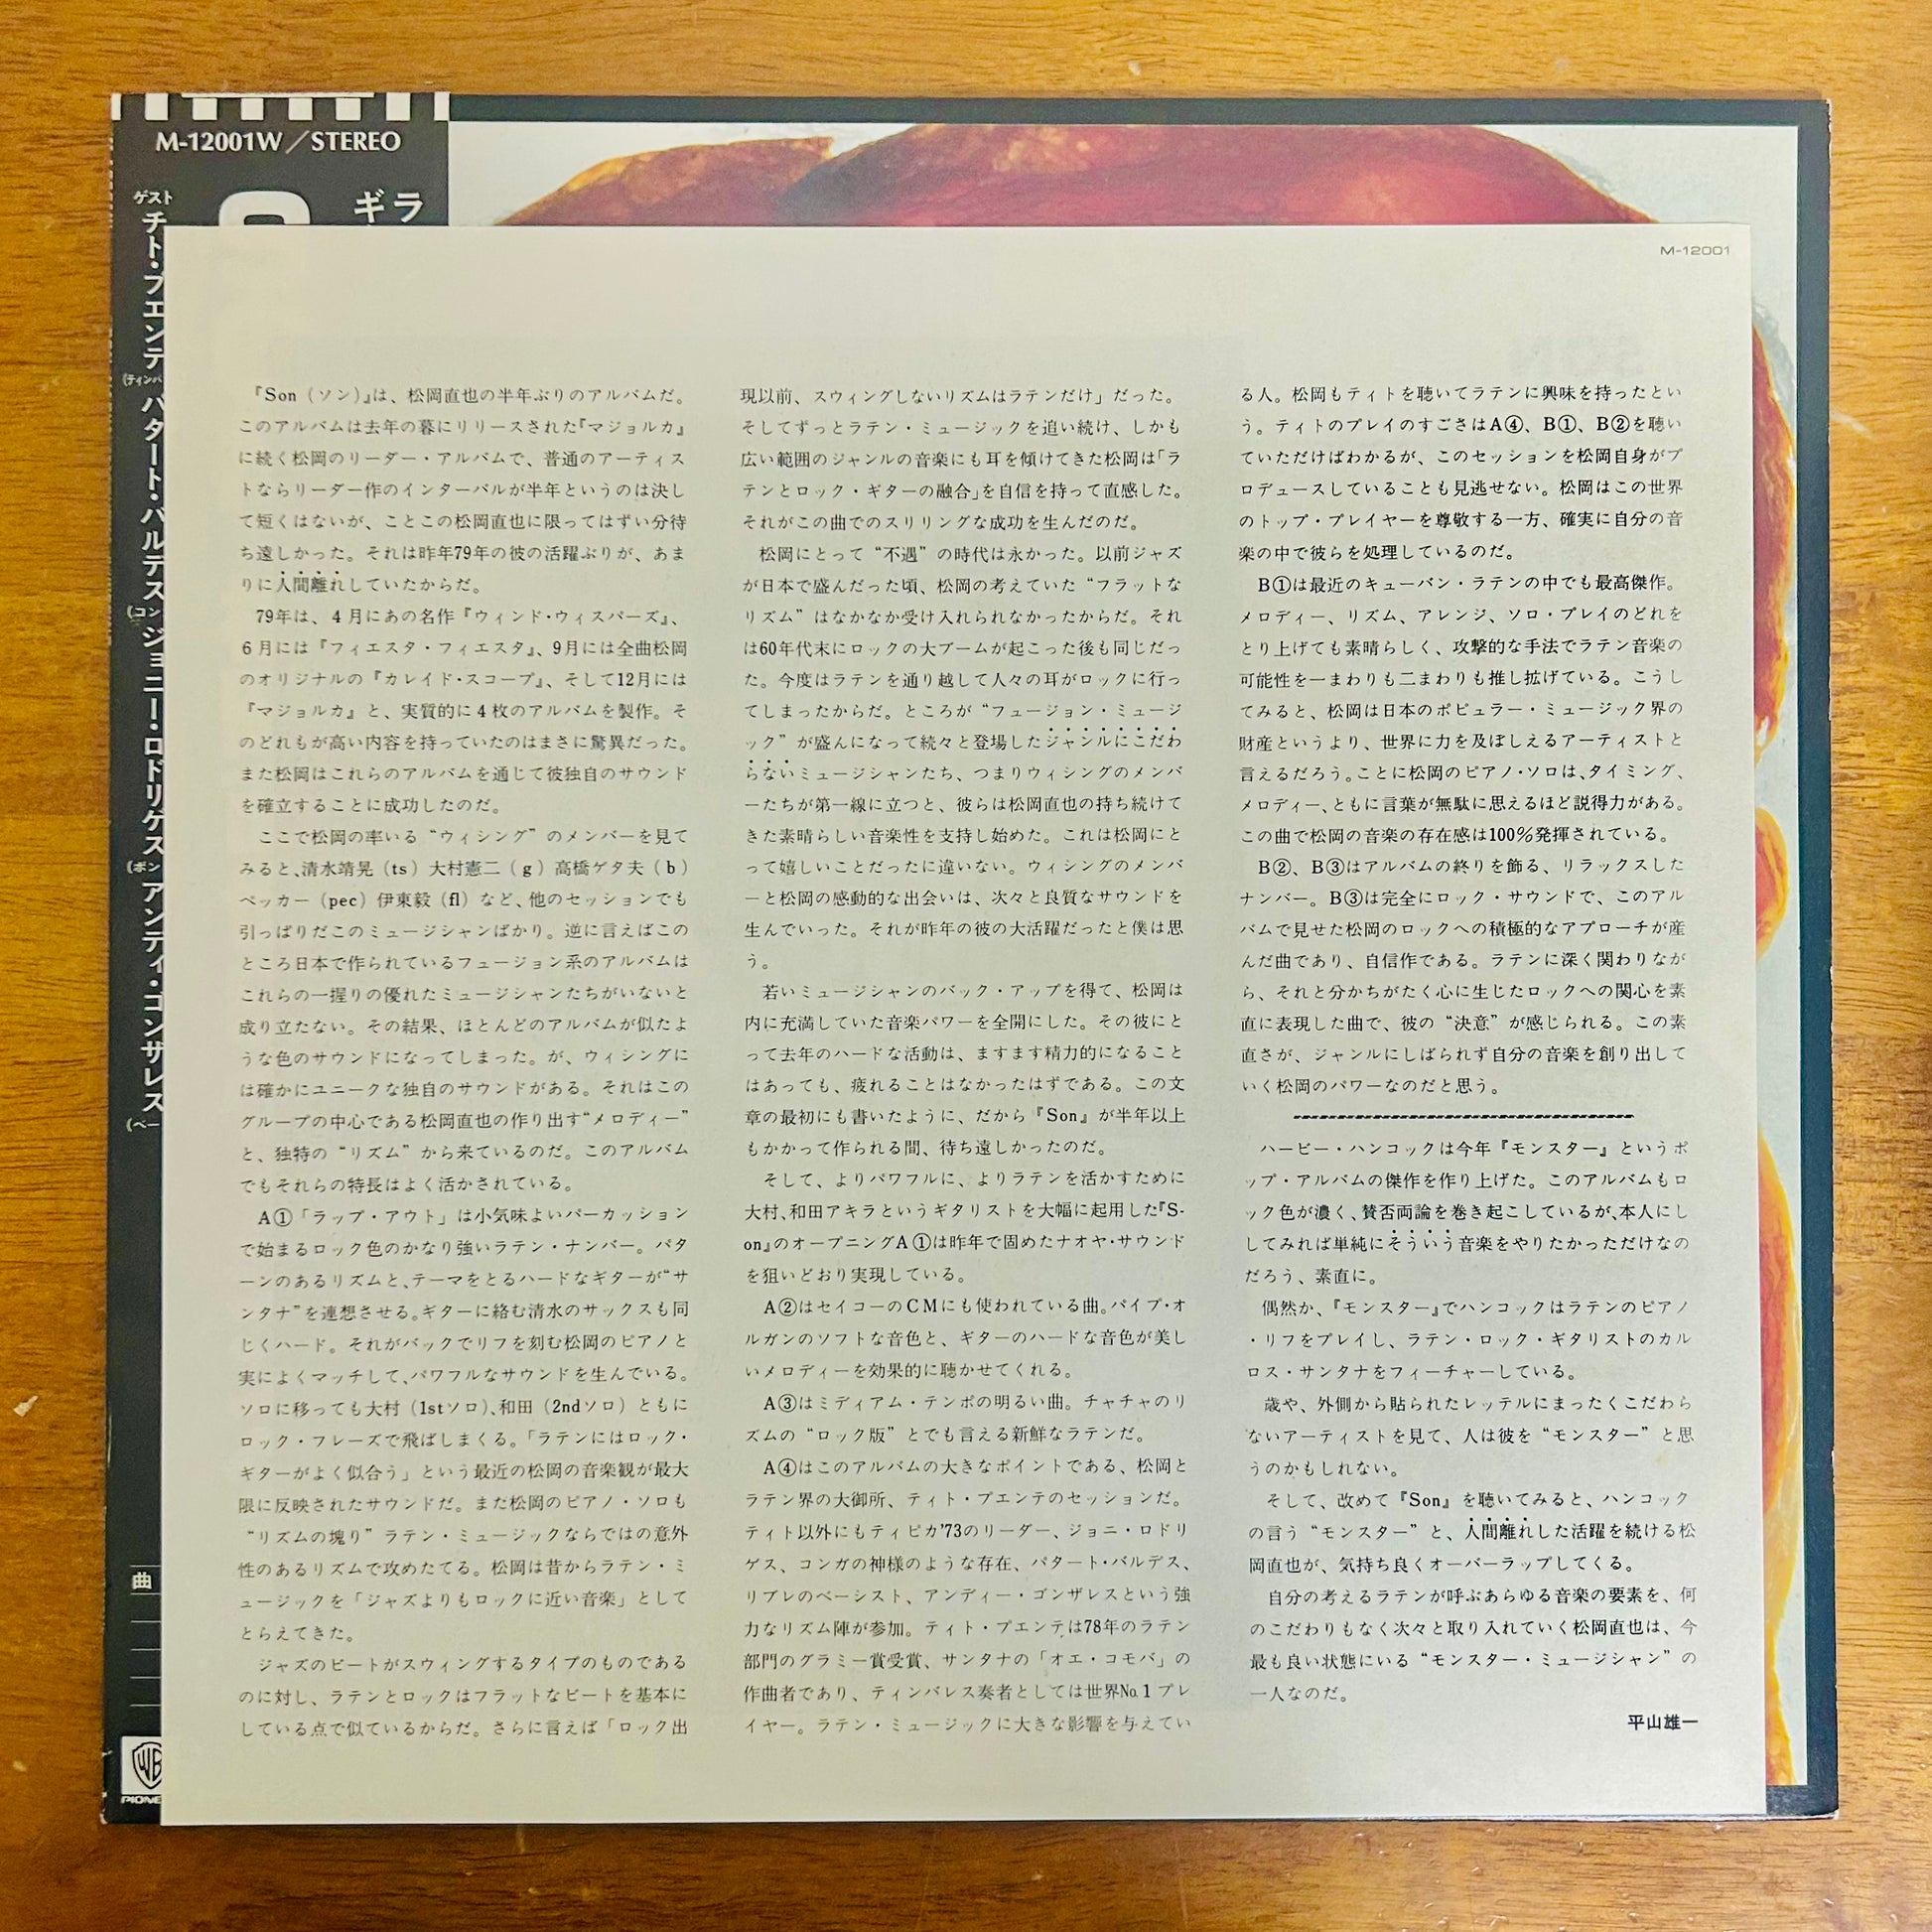 M-12001W／STEREO
ギラ
ゲスト
チト・プエンテ
(ティンバ
パタート・バルデス
(コン
ジョニー・ロドリゲス
(ボン
アンディ・ゴンザレス
(ベー
曲
WB
PIONE
M-12001
『Son（ソン）』は、松岡直也の半年ぶりのアルバムだ。
このアルバムは去年の暮にリリースされた『マジョルカ』
に続く松岡のリーダー・アルバムで、普通のアーティス
トならリーダー作のインターバルが半年というのは決し
て短くはないが、ことこの松岡直也に限ってはずい分待
ち遠しかった。それは昨年79年の彼の活躍ぶりが、あま
りに人間離れしていたからだ。
79年は、4月にあの名作『ウィンド・ウィスパーズ』、
6月には『フィエスタ・フィエスタ』、9月には全曲松岡
のオリジナルの『カレイド・スコープ』、そして12月には
『マジョルカ』と、実質的に4枚のアルバムを製作。そ
のどれもが高い内容を持っていたのはまさに驚異だった。
また松岡はこれらのアルバムを通じて彼独自のサウンド
を確立することに成功したのだ。
ここで松岡の率いる“ウィシング”のメンバーを見て
みると、清水靖晃（ts）大村憲二（g）高橋ゲタ夫（b）
ペッカー（pec）伊東毅（fl）など、他のセッションでも
引っぱりだこのミュージシャンばかり。逆に言えばこの
ところ日本で作られているフュージョン系のアルバムは
これらの一握りの優れたミュージシャンたちがいないと
成り立たない。その結果、ほとんどのアルバムが似たよ
うな色のサウンドになってしまった。が、ウィシングに
は確かにユニークな独自のサウンドがある。それはこの
グループの中心である松岡直也の作り出す“メロディー”
と、独特の“リズム”から来ているのだ。このアルバム
でもそれらの特長はよく活かされている。
A①「ラップ・アウト」は小気味よいパーカッション
で始まるロック色のかなり強いラテン・ナンバー。パタ
ーンのあるリズムと、テーマをとるハードなギターが“サ
ンタナ”を連想させる。ギターに絡む清水のサックスも同
じくハード。それがバックでリフを刻む松岡のピアノと
実によくマッチして、パワフルなサウンドを生んでいる。
ソロに移っても大村（1stソロ）、和田（2ndソロ）ともに
ロック・フレーズで飛ばしまくる。「ラテンにはロック・
ギターがよく似合う」という最近の松岡の音楽観が最大
限に反映されたサウンドだ。また松岡のピアノ・ソロも
“リズムの塊り”ラテン・ミュージックならではの意外
性のあるリズムで攻めたてる。松岡は昔からラテン・ミ
ュージックを「ジャズよりもロックに近い音楽」として
とらえてきた。
ジャズのビートがスウィングするタイプのものである
のに対し、ラテンとロックはフラットなビートを基本に
している点で似ているからだ。さらに言えば「ロック出
現以前、スウィングしないリズムはラテンだけ」だった。
そしてずっとラテン・ミュージックを追い続け、しかも
広い範囲のジャンルの音楽にも耳を傾けてきた松岡は「ラ
テンとロック・ギターの融合」を自信を持って直感した。
それがこの曲でのスリリングな成功を生んだのだ。
松岡にとって“不遇”の時代は永かった。以前ジャズ
が日本で盛んだった頃、松岡の考えていた“フラットな
リズム”はなかなか受け入れられなかったからだ。それ
は60年代末にロックの大ブームが起こった後も同じだっ
た。今度はラテンを通り越して人々の耳がロックに行っ
てしまったからだ。ところが“フュージョン・ミュージ
ック”が盛んになって続々と登場したジャンルにこだわ
らないミュージシャンたち、つまりウィシングのメンバ
ーたちが第一線に立つと、彼らは松岡直也の持ち続けて
きた素晴らしい音楽性を支持し始めた。これは松岡にと
って嬉しいことだったに違いない。ウィシングのメンバ
ーと松岡の感動的な出会いは、次々と良質なサウンドを
生んでいった。それが昨年の彼の大活躍だったと僕は思
う。
若いミュージシャンのバック・アップを得て、松岡は
内に充満していた音楽パワーを全開にした。その彼にと
って去年のハードな活動は、ますます精力的になること
はあっても、疲れることはなかったはずである。この文
章の最初にも書いたように、だから『Son』が半年以上
もかかって作られる間、待ち遠しかったのだ。
そして、よりパワフルに、よりラテンを活かすために
大村、和田アキラというギタリストを大幅に起用した『S-
on』のオープニングA①は昨年で固めたナオヤ・サウンド
を狙いどおり実現している。
A②はセイコーのCMにも使われている曲。パイプ・オ
ルガンのソフトな音色と、ギターのハードな音色が美し
いメロディーを効果的に聴かせてくれる。
A③はミディアム・テンポの明るい曲。チャチャのリ
ズムの“ロック版”とでも言える新鮮なラテンだ。
A④はこのアルバムの大きなポイントである、松岡と
ラテン界の大御所、ティト・プエンテのセッションだ。
ティト以外にもティピカ'73のリーダー、ジョニ・ロドリ
ゲス、コンガの神様のような存在、パタート・バルデス、
リブレのベーシスト、アンディー・ゴンザレスという強
力なリズム陣が参加。ティト・プエンテは78年のラテン
部門のグラミー賞受賞、サンタナの「オエ・コモバ」の
作曲者であり、ティンバレス奏者としては世界No.1プレ
イヤー。ラテン・ミュージックに大きな影響を与えてい
る人。松岡もティトを聴いてラテンに興味を持ったとい
う。ティトのプレイのすごさはA④、B①、B②を聴い
ていただけばわかるが、このセッションを松岡自身がプ
ロデュースしていることも見逃せない。松岡はこの世界
のトップ・プレイヤーを尊敬する一方、確実に自分の音
楽の中で彼らを処理しているのだ。
B①は最近のキューバン・ラテンの中でも最高傑作。
メロディー、リズム、アレンジ、ソロ・プレイのどれを
とり上げても素晴らしく、攻撃的な手法でラテン音楽の
可能性を一まわりも二まわりも推し拡げている。こうし
てみると、松岡は日本のポピュラー・ミュージック界の
財産というより、世界に力を及ぼしえるアーティストと
言えるだろう。ことに松岡のピアノ・ソロは、タイミング、
メロディー、ともに言葉が無駄に思えるほど説得力がある。
この曲で松岡の音楽の存在感は100％発揮されている。
B②、B③はアルバムの終りを飾る、リラックスした
ナンバー。B③は完全にロック・サウンドで、このアル
バムで見せた松岡のロックへの積極的なアプローチが産
んだ曲であり、自信作である。ラテンに深く関わりなが
ら、それと分かちがたく心に生じたロックへの関心を素
直に表現した曲で、彼の“決意”が感じられる。この素
直さが、ジャンルにしばられず自分の音楽を創り出して
いく松岡のパワーなのだと思う。
ハービー・ハンコックは今年『モンスター』というポ
ップ・アルバムの傑作を作り上げた。このアルバムもロ
ック色が濃く、賛否両論を巻き起こしているが、本人にし
してみれば単純にそういう音楽をやりたかっただけなの
だろう、素直に。
偶然か、『モンスター』でハンコックはラテンのピアノ
・リフをプレイし、ラテン・ロック・ギタリストのカル
ロス・サンタナをフィーチャーしている。
歳や、外側から貼られたレッテルにまったくこだわら
ないアーティストを見て、人は彼を“モンスター”と思
うのかもしれない。
そして、改めて『Son』を聴いてみると、ハンコック
の言う“モンスター”と、人間離れした活躍を続ける松
岡直也が、気持ち良くオーバーラップしてくる。
自分の考えるラテンが呼ぶあらゆる音楽の要素を、何
のこだわりもなく次々と取り入れていく松岡直也は、今
最も良い状態にいる“モンスター・ミュージシャン”の
一人なのだ。
平山雄一